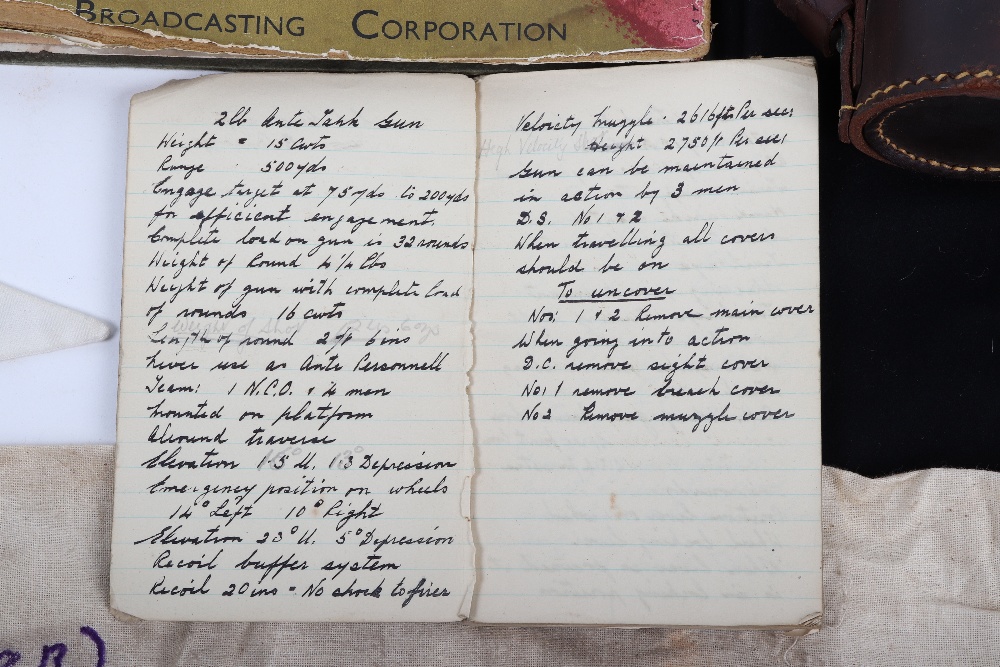 BROADCASTING CORPORATION
2lb Ante Tank Gun
Weight = 15 Cwts
Range 500yds
Engage target at 75yds to 200yds
for efficient engagement.
Complete load on gun is 32 rounds
Weight of Round 4 1/4 lbs
Weight of gun with complete load
of rounds 16 cwts
Weight of Shot
Length of round 2ft 6 ins
Never use as Ante Personnell
Team: 1 N.C.O. & 4 men
Mounted on platform
Alround traverse
Elevation 15° U. 13° Depression
Emergency position on wheels
14° Left 10° Right
Elevation 23° U. 5° Depression
Recoil buffer system
Recoil 20 ins = No shock to firer
Veloicty Muzzle. 2616fts Per sec:
High Velocity
Height 2750ft Per sec:
Gun can be maintained
in action by 3 men
D.S. No 1 & 2
When travelling all covers
should be on
To uncover
Nos: 1 & 2 Remove main cover
When going into action
D.C. remove sight cover
No: 1 remove breach cover
No 2 Remove muzzle cover